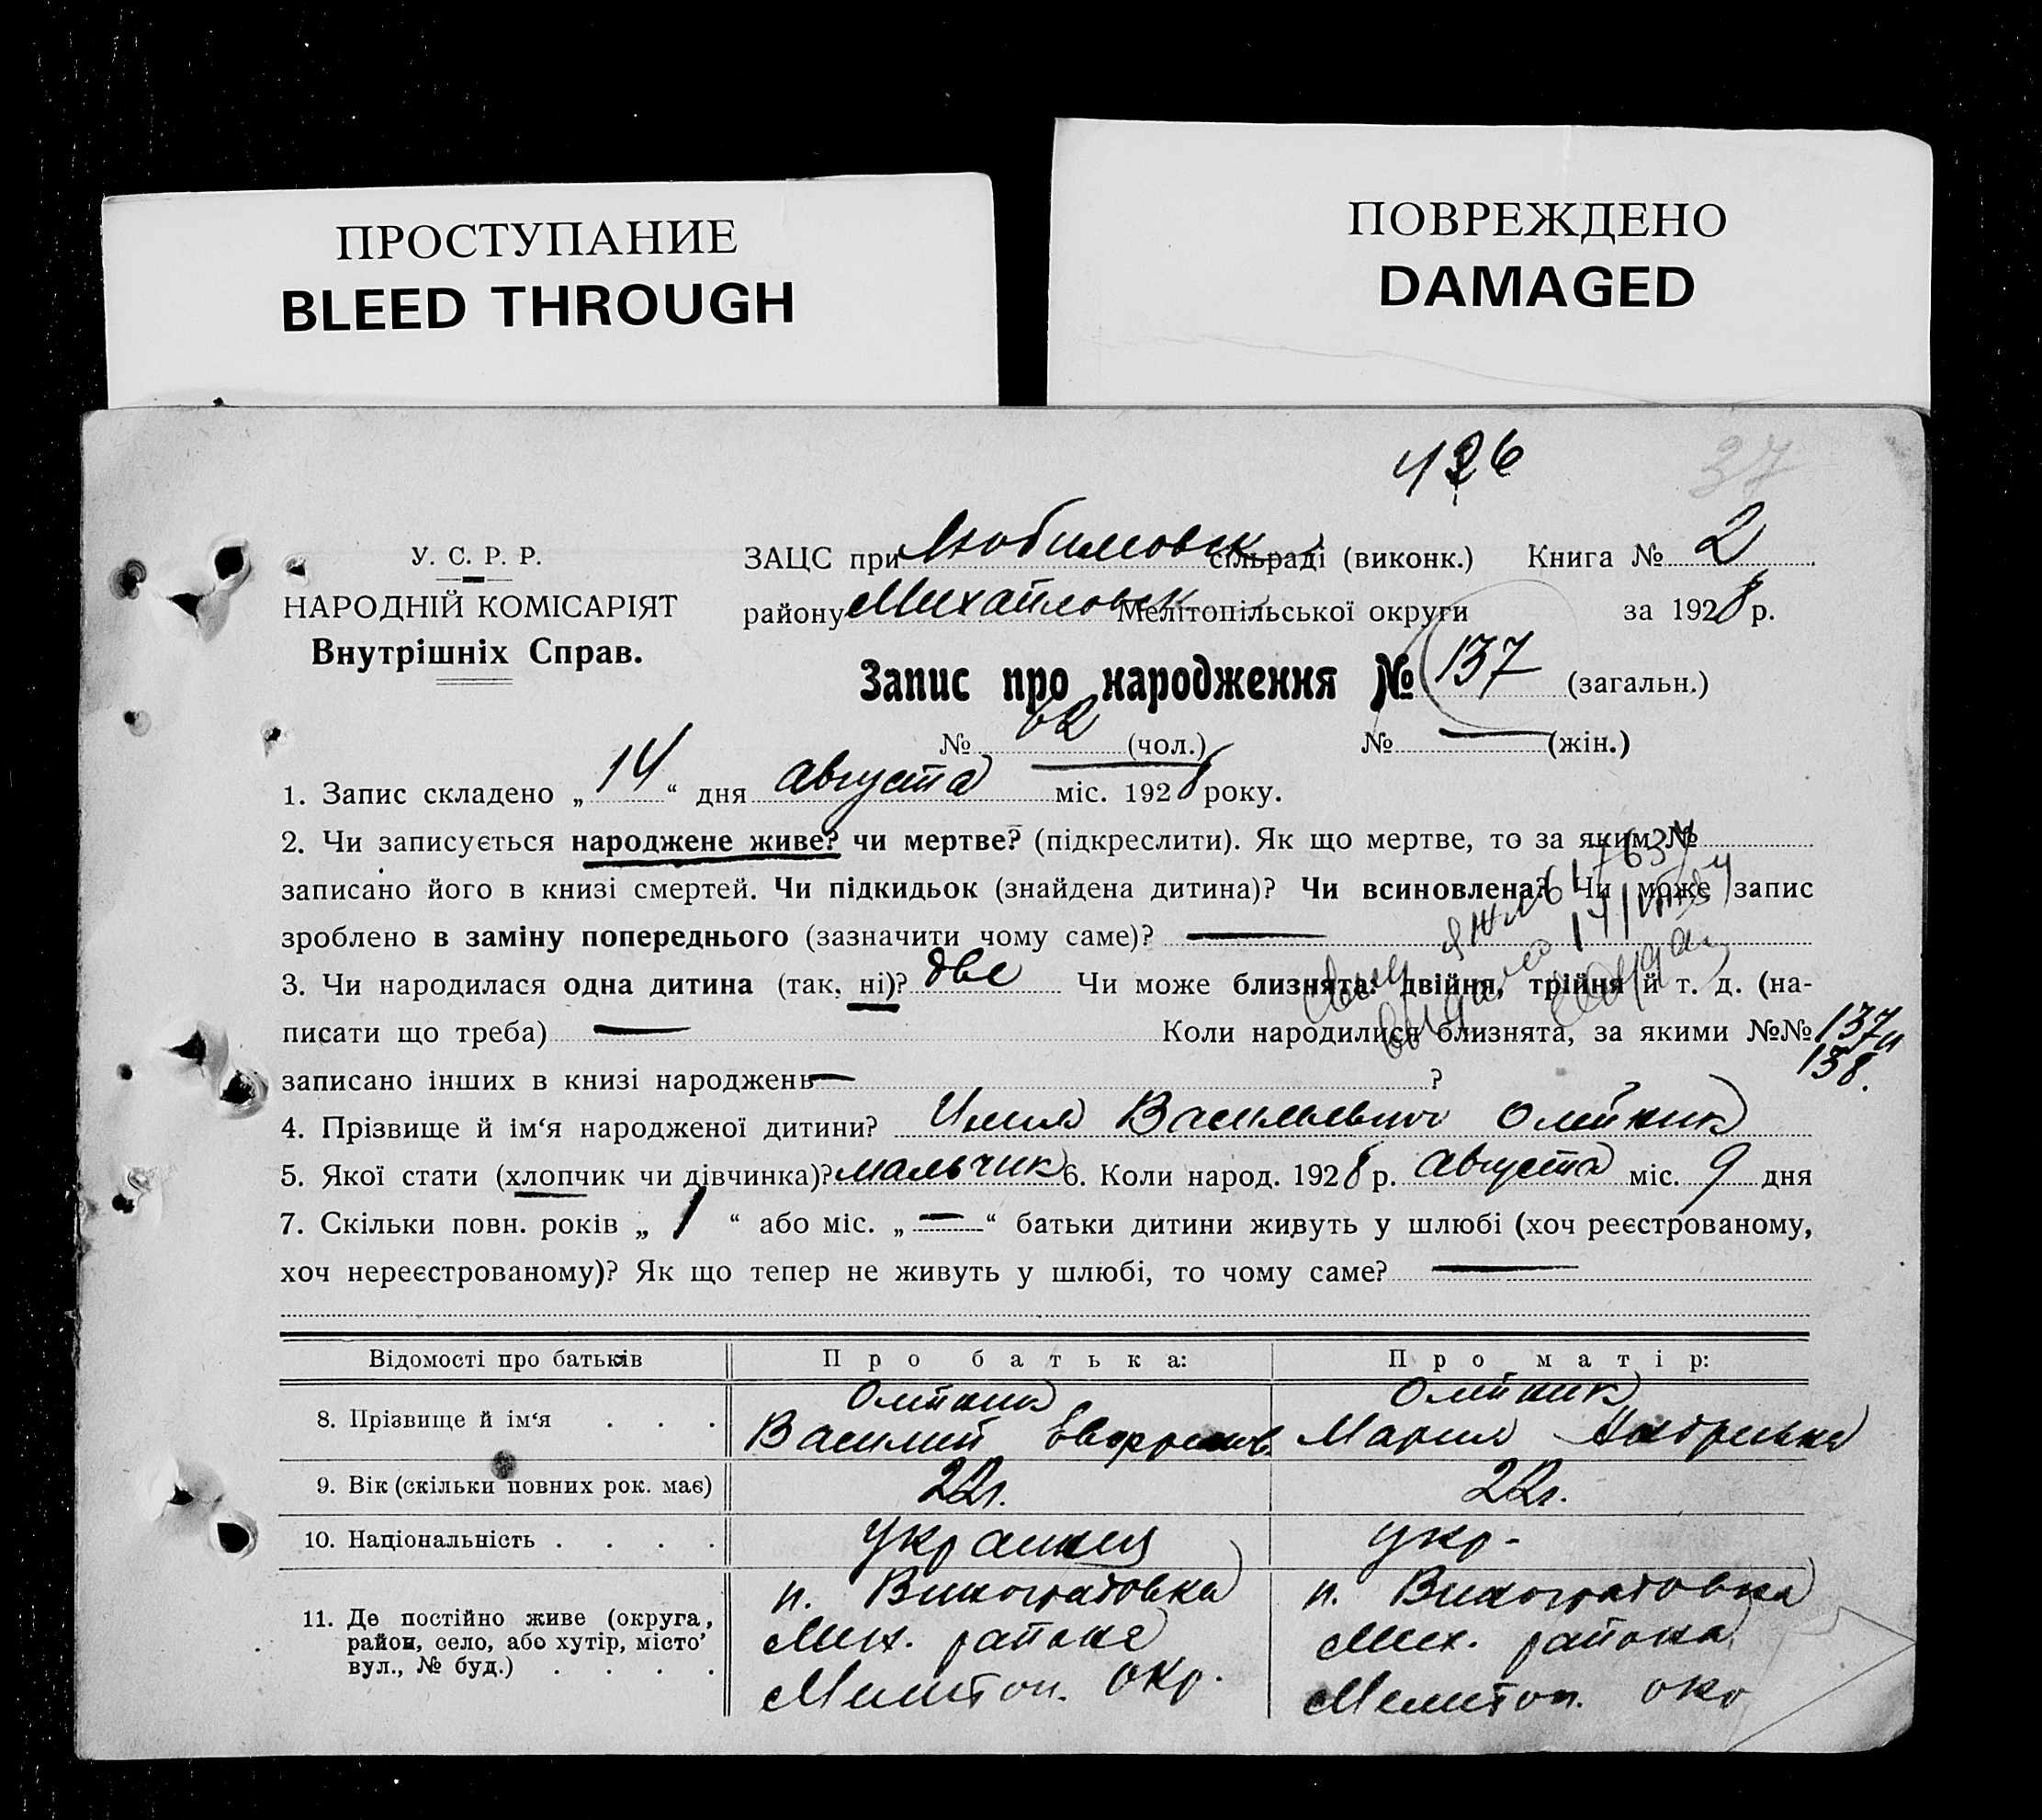 ПРОСТУПАНИЕ
BLEED THROUGH
ПОВРЕЖДЕНО
DAMAGED
426
37
У. С. Р. Р.
НАРОДНІЙ КОМІСАРІЯТ
Внутрішніх Справ.
ЗАЦС при Любимовск сільраді (виконк.) Книга № 2
району Михайловск Мелітопільської округи за 1928 р.
Запис про народження № 137 (загальн.)
№ 62 (чол.) № — (жін.)
1. Запис складено „ 14 “ дня августа міс. 1928 року.
2. Чи записується народжене живе? чи мертве? (підкреслити). Як що мертве, то за яким №
записано його в книзі смертей. Чи підкидьок (знайдена дитина)? Чи всиновлена? Чи може запис
зроблено в заміну попереднього (зазначити чому саме)? —
3. Чи народилася одна дитина (так, ні)? две Чи може близнята: двійня, трійня й т. д. (на-
писати що треба) — Коли народилися близнята, за якими №№ 137 и
138.
записано інших в книзі народжень — ?
4. Прізвище й ім‘я народженої дитини? Васильевич Олейник
5. Якої стати (хлопчик чи дівчинка)? мальчик 6. Коли народ. 1928 р. августа міс. 9 дня
7. Скільки повн. років „ 1 “ або міс. „ — “ батьки дитини живуть у шлюбі (хоч реєстрованому,
хоч нереєстрованому)? Як що тепер не живуть у шлюбі, то чому саме? —
Відомості про батьків Про батька: Про матір:
8. Прізвище й ім‘я . . . Олейник Олейник
Василий Мария
9. Вік (скільки повних рок. має) 22 г. 22 г.
10. Національність . . . . украинец укр-
11. Де постійно живе (округа, п. Виноградовка п. Виноградовка
район, село, або хутір, місто’ Мих. района Мих. района
вул., № буд.) . . . . Мелитоп. окр. Мелитоп. окр